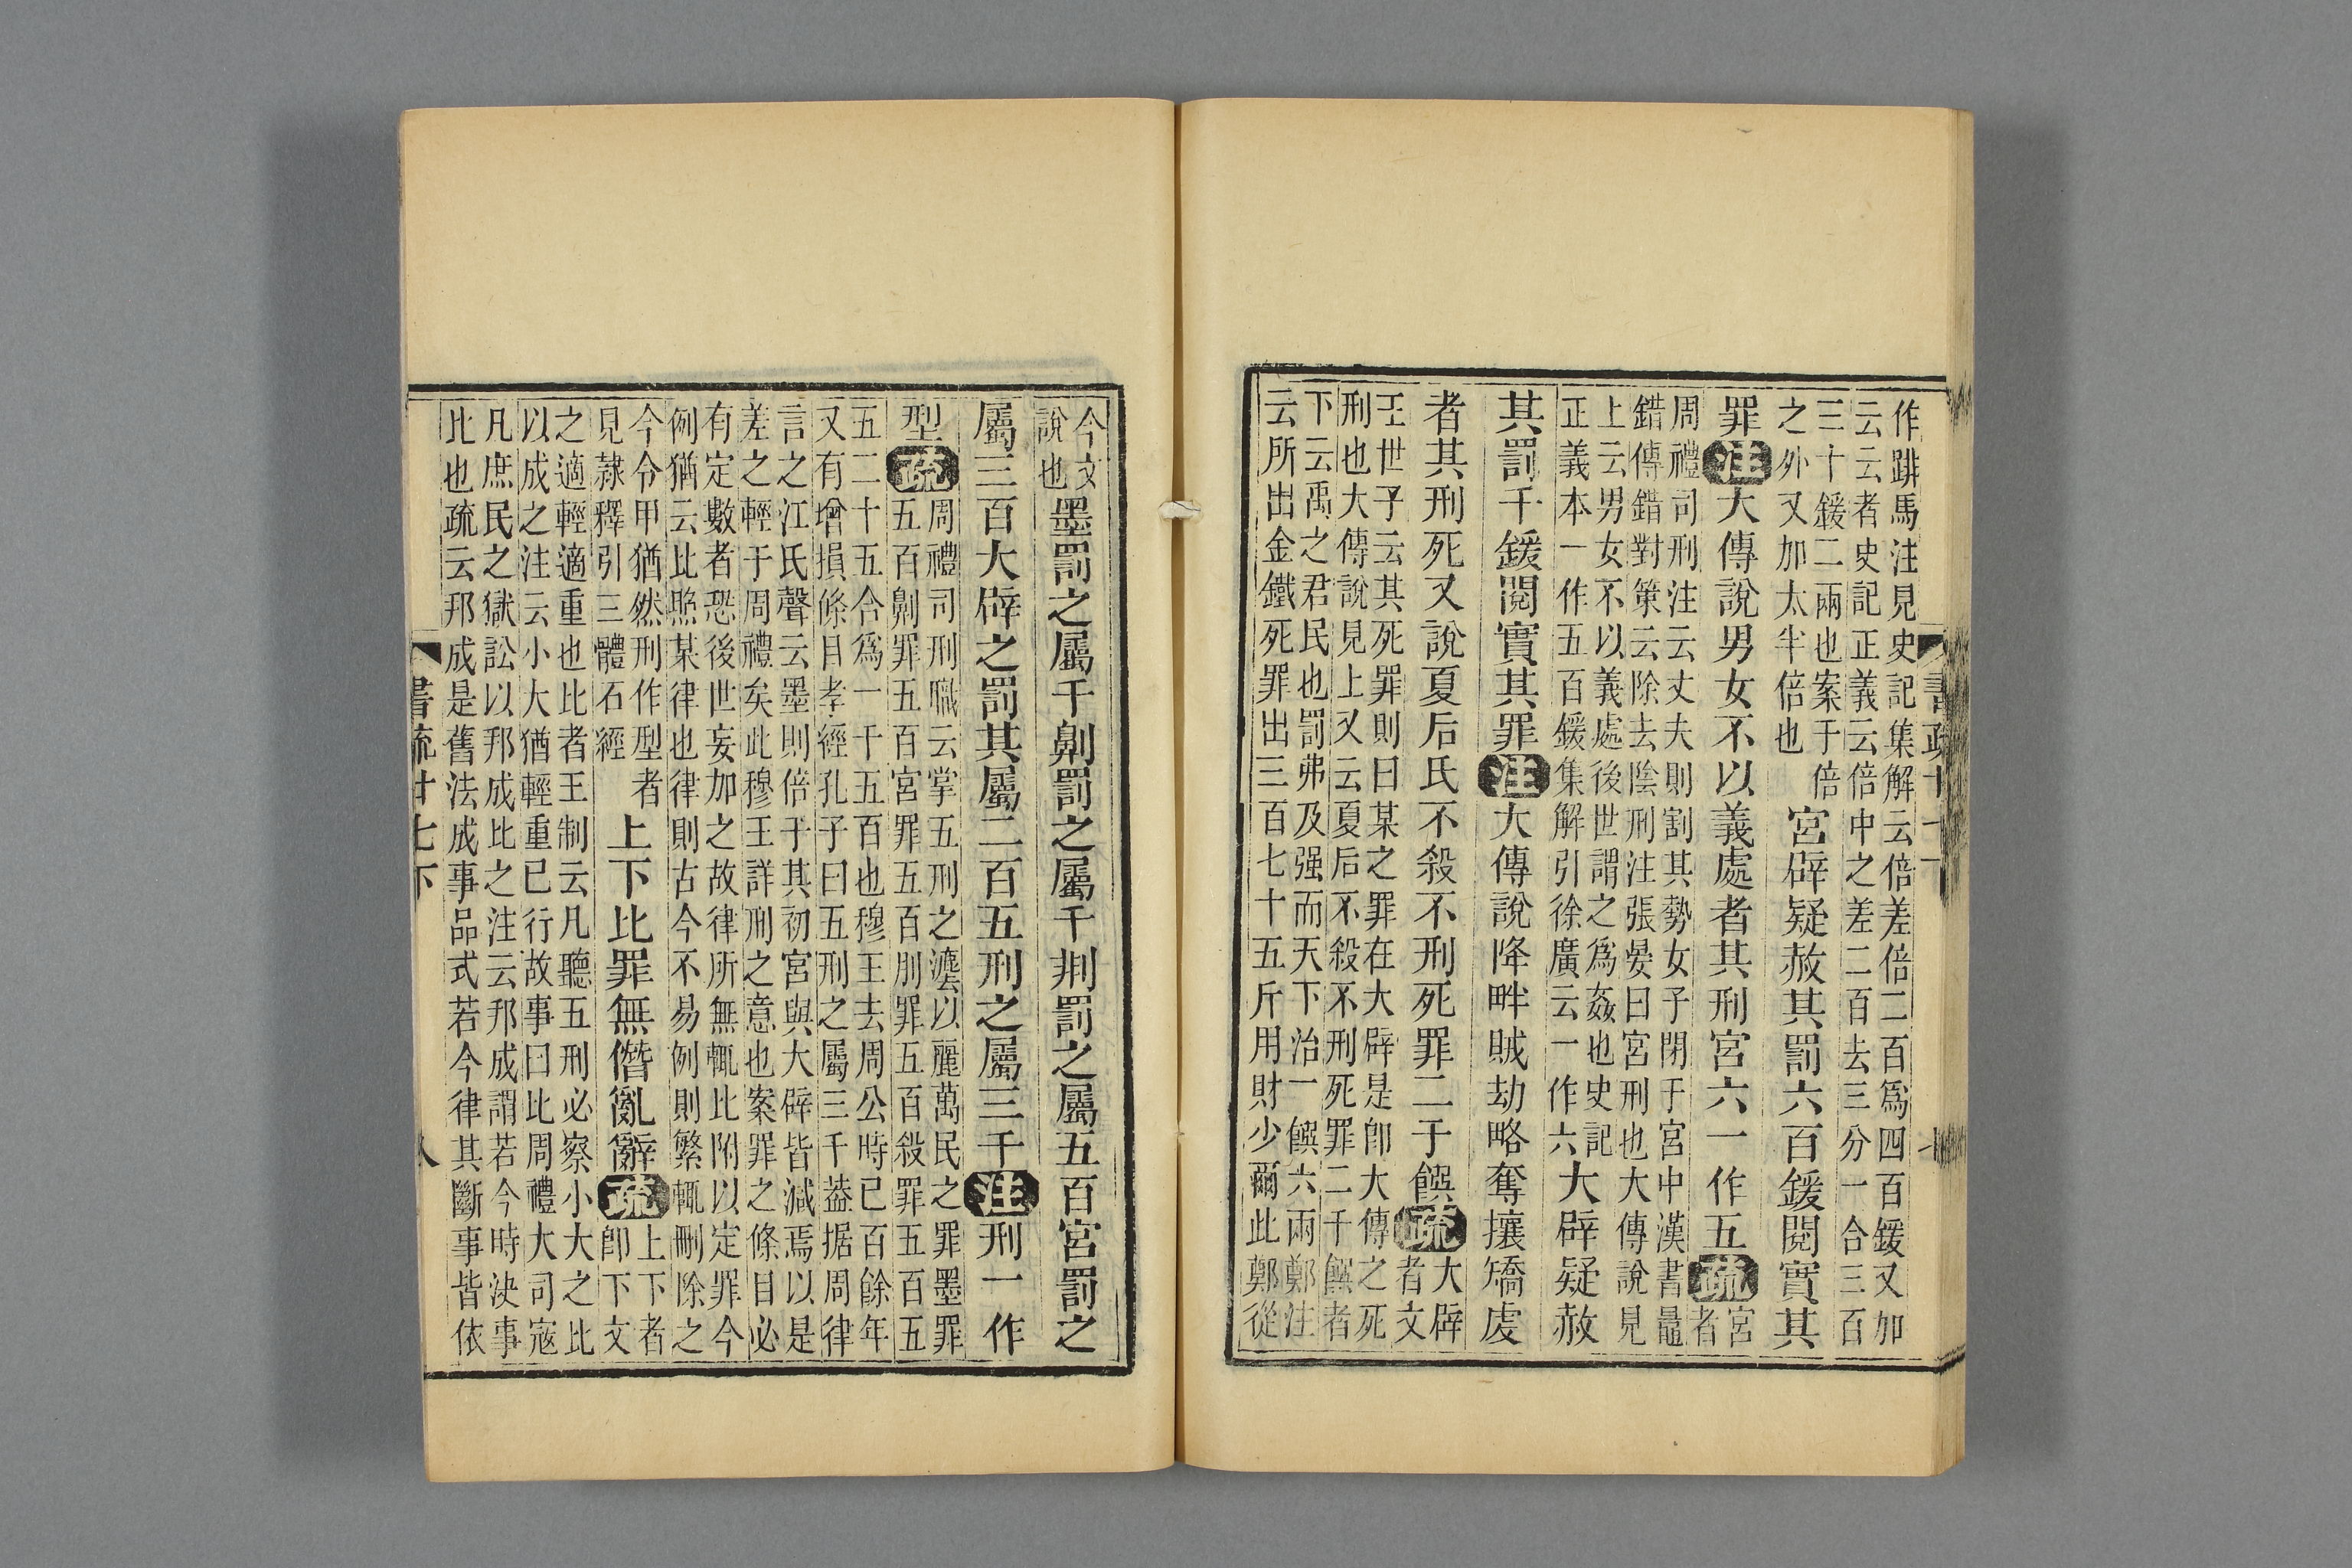 作跰馬注見史記集解云倍差倍二百爲四百鍰又加
云云者史記正義云倍中之差二百去三分一合三百
三十鍰二兩也案于倍
之外又加太半倍也
宮辟疑赦其罰六百鍰閱實其
罪注大傳說男女不以義處者其刑宮六一作五疏宮
者
周禮司刑注云丈夫則割其勢女子閉于宮中漢書鼂
錯傳錯對策云除去陰刑注張晏曰宮刑也大傳說見
上云男女不以義處後世謂之爲姦也史記
正義本一作五百鍰集解引徐廣云一作六
大辟疑赦
其罰千鍰閱實其罪注大傳說降畔賊劫略奪攘矯虔
者其刑死又說夏后氏不殺不刑死罪二于饌疏大辟
者文
王世子云其死罪則曰某之罪在大辟是卽大傳之死
刑也大傳說見上又云夏后不殺不刑死罪二千饌者
下云禹之君民也罰弗及强而天下治一饌六兩鄭注
云所出金鐵死罪出三百七十五斤用財少爾此鄭從
今文
說也
墨罰之屬千劓罰之屬千剕罰之屬五百宮罰之
屬三百大辟之罰其屬二百五刑之屬三千注刑一作
型疏周禮司刑職云掌五刑之灋以麗萬民之罪墨罪
五百劓罪五百宮罪五百刖罪五百殺罪五百五
五二十五合爲一千五百也穆王去周公時已百餘年
又有增損條目孝經孔子曰五刑之屬三千葢据周律
言之江氏聲云墨則倍于其初宮與大辟皆減焉以是
差之輕于周禮矣此穆王詳刑之意也案罪之條目必
有定數者恐後世妄加之故律所無輒比附以定罪今
例猶云比照某律也律則古今不易例則繁輒刪除之
今令甲猶然刑作型者
見隷釋引三體石經
上下比罪無僭亂辭疏上下者
卽下文
之適輕適重也比者王制云凡聽五刑必察小大之比
以成之注云小大猶輕重已行故事曰比周禮大司寇
凡庶民之獄訟以邦成比之注云邦成謂若今時決事
比也疏云邦成是舊法成事品式若今律其斷事皆依
書疏廿七下